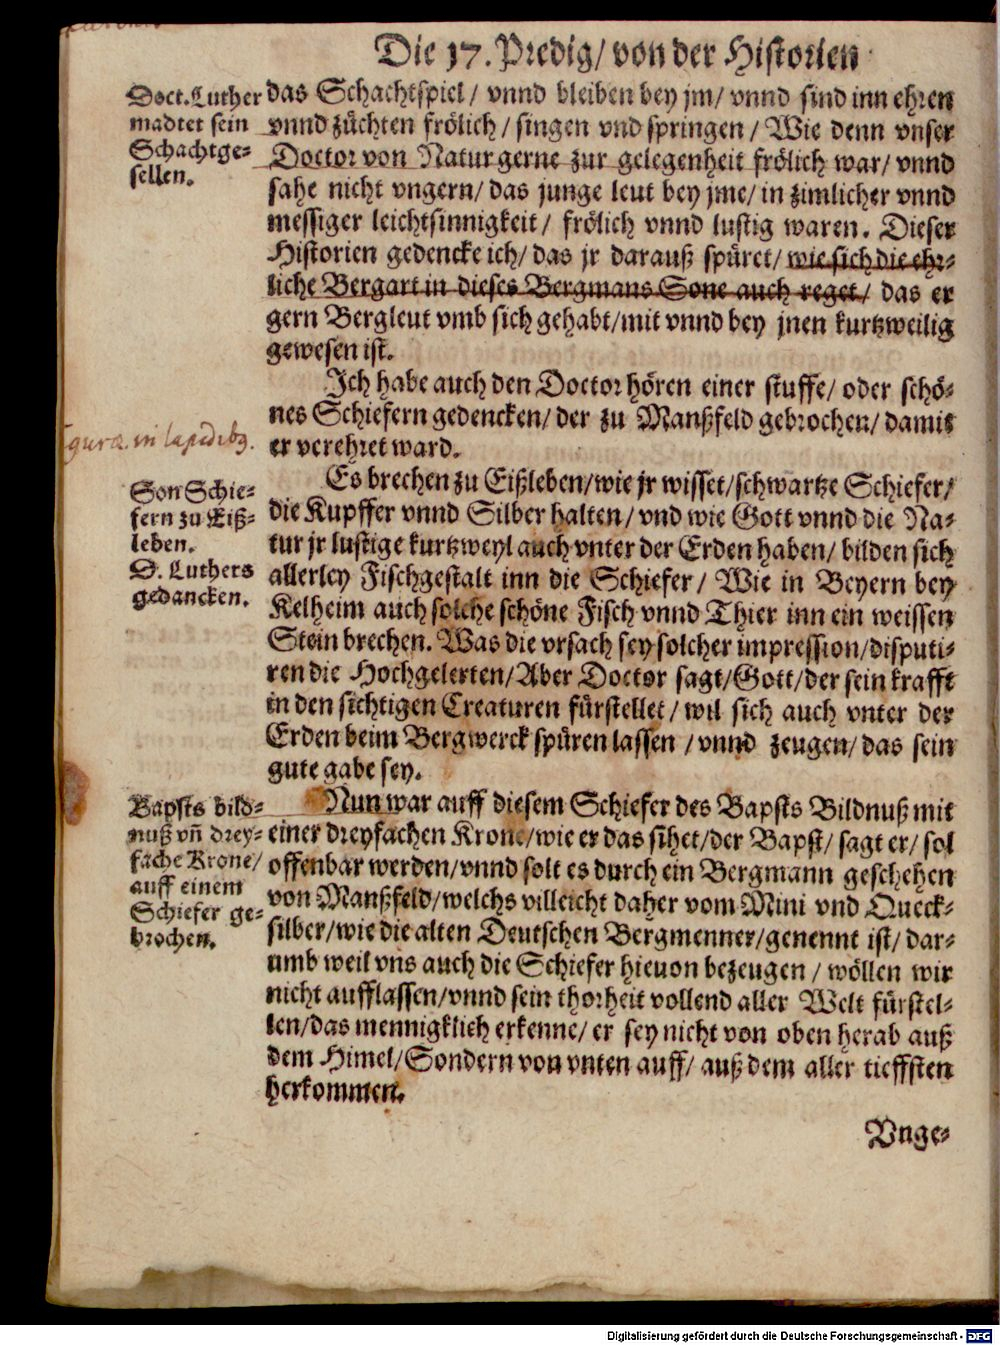 Die 17. Predig/ von der Historien
Doct. Luther
madtet sein
Schachtge⸗
sellen.
das Schachtspiel/ vnnd bleiben bey jm/ vnnd sind inn ehren
vnnd züchten frölich/ singen vnd springen/ Wie denn vnser
Doctor von Natur gerne zur gelegenheit frölich war/ vnnd
sahe nicht vngern/ das junge leut bey jme/ in zimlicher vnnd
messiger leichtsinnigkeit/ frölich vnnd lustig waren. Dieser
Historien gedencke ich/ das jr darauß spüret/ wie sich die ehr⸗
liche Bergart in dieses Bergmans Sone auch reget/ das er
gern Bergleut vmb sich gehabt/mit vnnd bey jnen kurtzweilig
gewesen ist.
Ich habe auch den Doctor hören einer stuffe/ oder schö⸗
nes Schiefern gedencken/ der zu Manßfeld gebrochen/ damit
er verehret ward.
gura in lapidibg.
Son Schie⸗
fern zu Eiß⸗
leben.
D. Luthers
gedancken.
Es brechen zu Eißleben/wie jr wisset/schwartze Schiefer/
die Kupffer vnnd Silber halten/ vnd wie Gott vnnd die Na⸗
tur jr lustige kurtzweyl auch vnter der Erden haben/ bilden sich
allerley Fischgestalt inn die Schiefer/ Wie in Beyern bey
Kelheim auch solche schöne Fisch vnnd Thier inn ein weissen
Stein brechen. Was die vrsach sey solcher impression/disputi⸗
ren die Hochgelerten/Aber Doctor sagt/Gott/der sein krafft
in den sichtigen Creaturen fürstellet/ wil sich auch vnter der
Erden beim Bergwerck spüren lassen/ vnnd zeugen/ das sein
gute gabe sey.
Bapsts bild⸗
nuß vñ drey⸗
fache Krone/
auff einem
Schiefer ge⸗
brochen.
Nun war auff diesem Schiefer des Bapsts Bildnuß mit
einer dreyfachen Krone/wie er das sihet/der Bapst/ sagt er/ sol
offenbar werden/vnnd solt es durch ein Bergmann geschehen
von Manßfeld/welchs villeicht daher vom Mini vnd Queck⸗
silber/wie die alten Deutschen Bergmenner/genennt ist/ dar⸗
umb weil vns auch die Schiefer hieuon bezeugen/ wöllen wir
nicht aufflassen/vnnd sein thorheit vollend aller Welt fürstel⸗
len/das mennigklich erkenne/ er sey nicht von oben herab auß
dem Himel/Sondern von vnten auff/ auß dem aller tieffsten
herkommen.
Vnge⸗
Digitalisierung gefördert durch die Deutsche Forschungsgemeinschaft - DFG